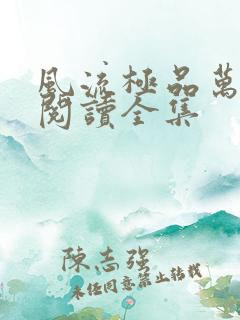 風流極品萬
閱讀全集
陳志強
未經同意禁止轉載